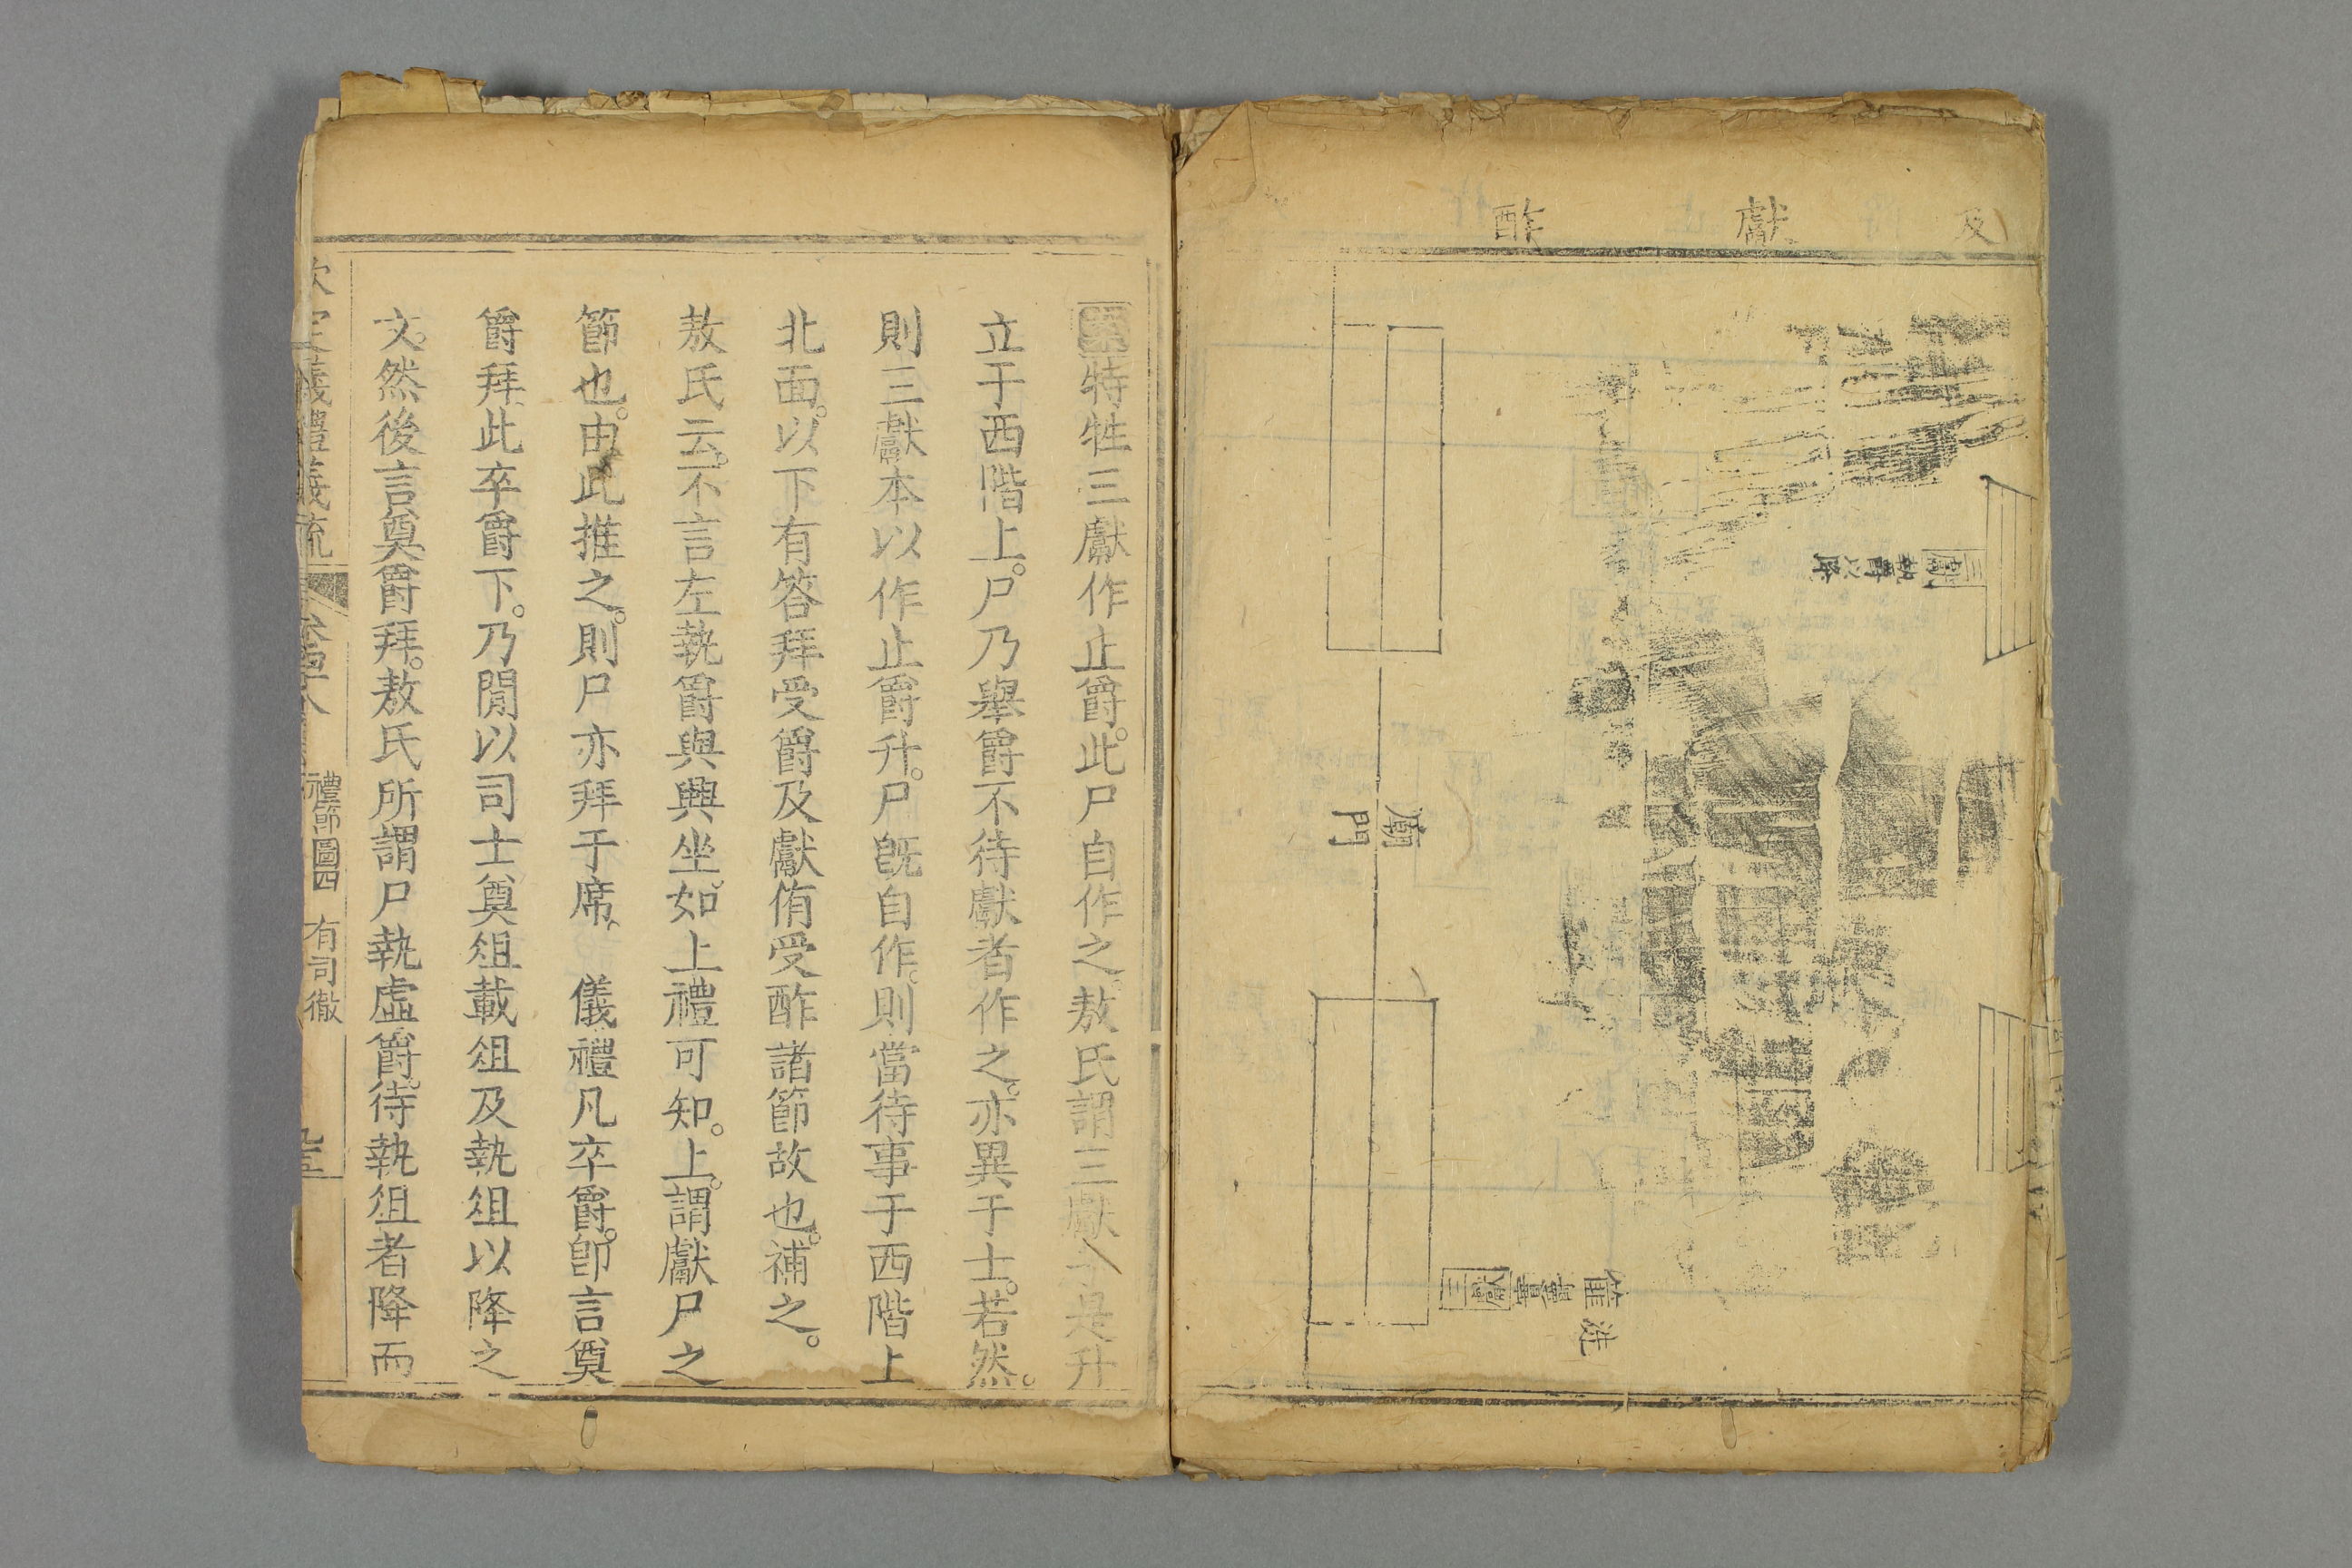 及獻酢
三獻
執爵以降
廟門
三獻
洗
篚
案特牲三獻作止爵。此尸自作之。敖氏謂三獻于是升
立于西階上。尸乃舉爵不待獻者作之。亦異于士。若然。
則三獻本以作止爵升。尸既自作。則當待事于西階上
北面。以下有答拜受爵及獻侑受酢諸節故也。補之。
敖氏云。不言左執爵與興坐。如上禮可知。上。謂獻尸之
節也。由此推之。則尸亦拜于席。 儀禮凡卒爵。卽言奠
爵拜。此卒爵下。乃閒以司士奠俎載俎及執俎以降之
文。然後言奠爵拜。敖氏所謂尸執虛爵。待執俎者降而
禮節圖四 有司徹